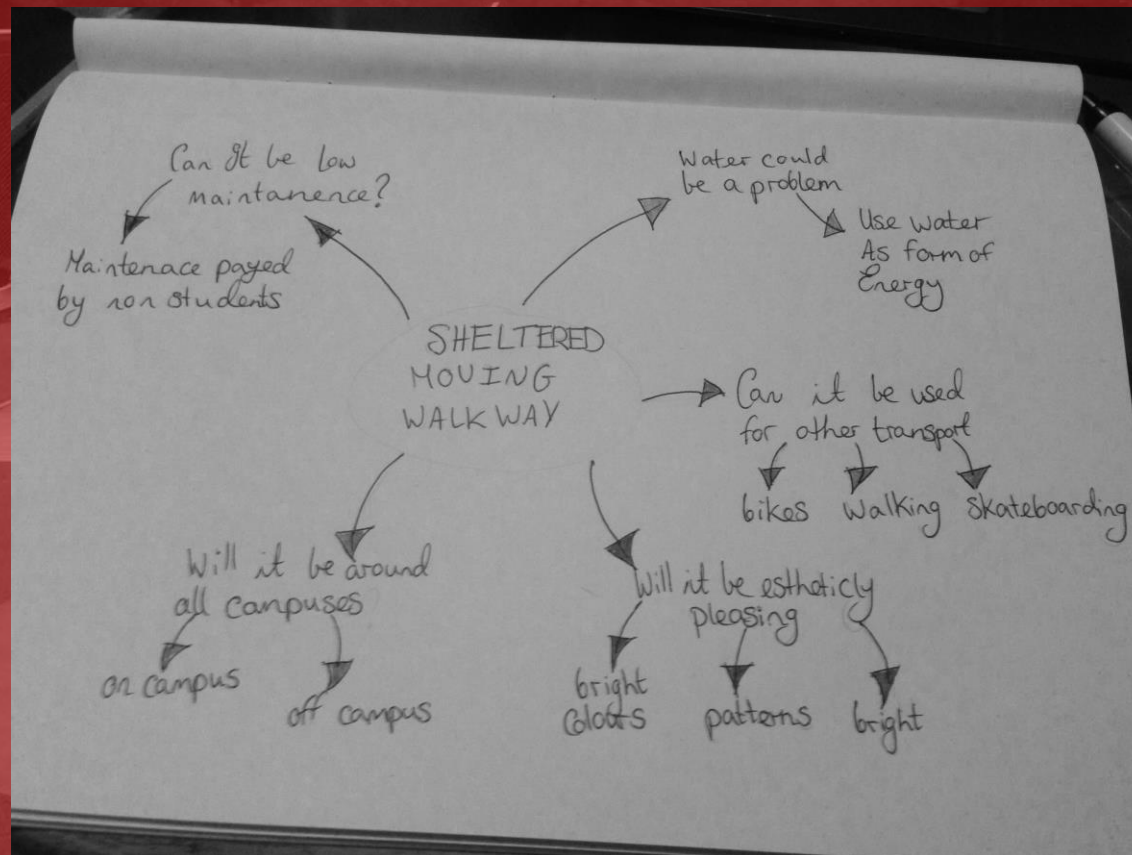 Can It be Low
maintanence?
Maintenace payed
by non students
Water could
be a problem
Use water
As form of
Energy
SHELTERED
MOVING
WALKWAY
Can it be used
for other transport
bikes walking skateboarding
Will it be around
all campuses
on campus
off campus
Will it be estheticly
pleasing
bright
colours
patterns
bright